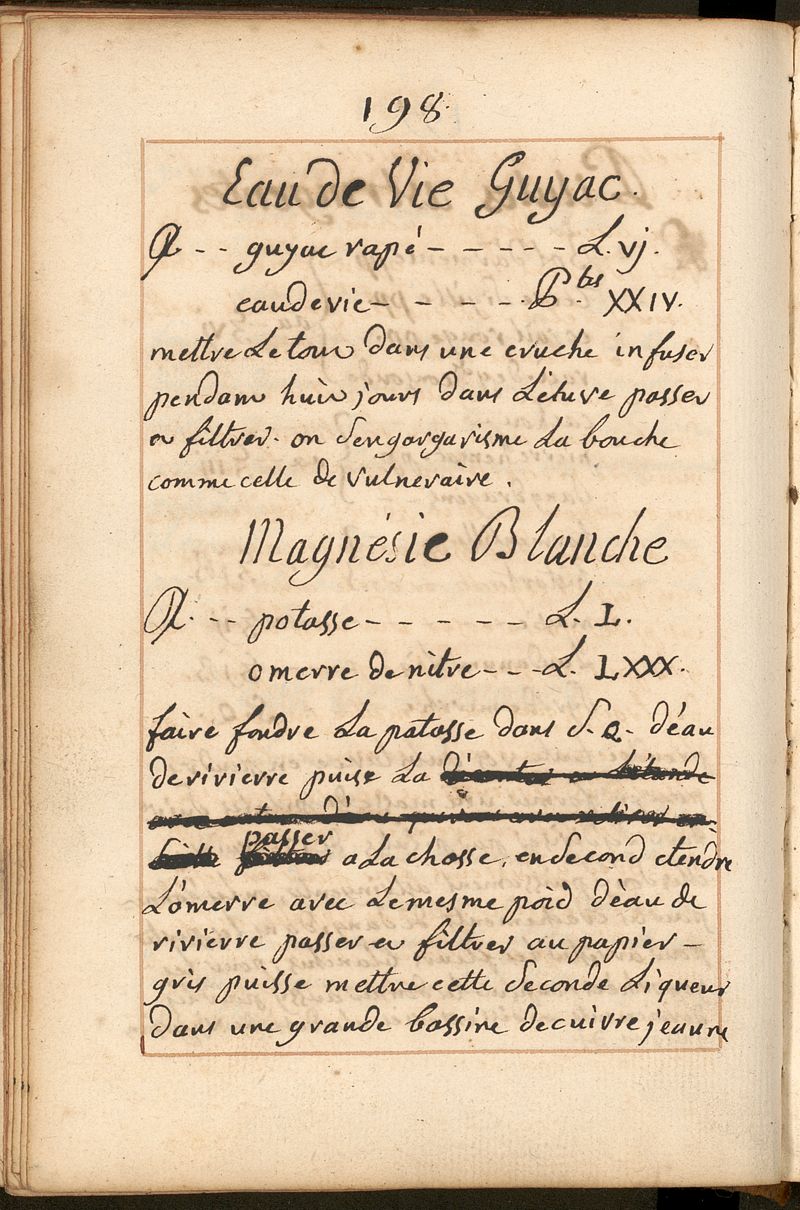 198
Eau de Vie Guyac.
℞ - - guyac rapé - - - - - L. vj.
eau de vie - - - - - P. tes XXIV.
mettre Le tout dans une cruche infuser
pendant huit jours dans L'étuve passer
et filtrer. on S'en gargarisme La bouche
comme celle de vulneraire.
Magnésie Blanche
℞. - - potasse - - - - - L. L.
omerre de nitre - - - L. LXXX.
faire fondre La patasse dans S. Q. d'éau
de rivierre puise La
passer
a La chosse, en Second etendre
L'omerre avec Le mesme poid d'èau de
rivierre passer et filtrer au papier -
gris puisse mettre cette Seconde Liqueur
dans une grande bassine de cuivre jeaune